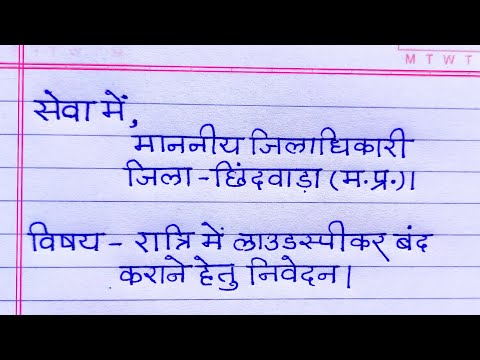 M T W T
सेवा में,
माननीय जिलाधिकारी
जिला - छिंदवाड़ा (म.प्र.)।
विषय - रात्रि में लाउडस्पीकर बंद
कराने हेतु निवेदन।